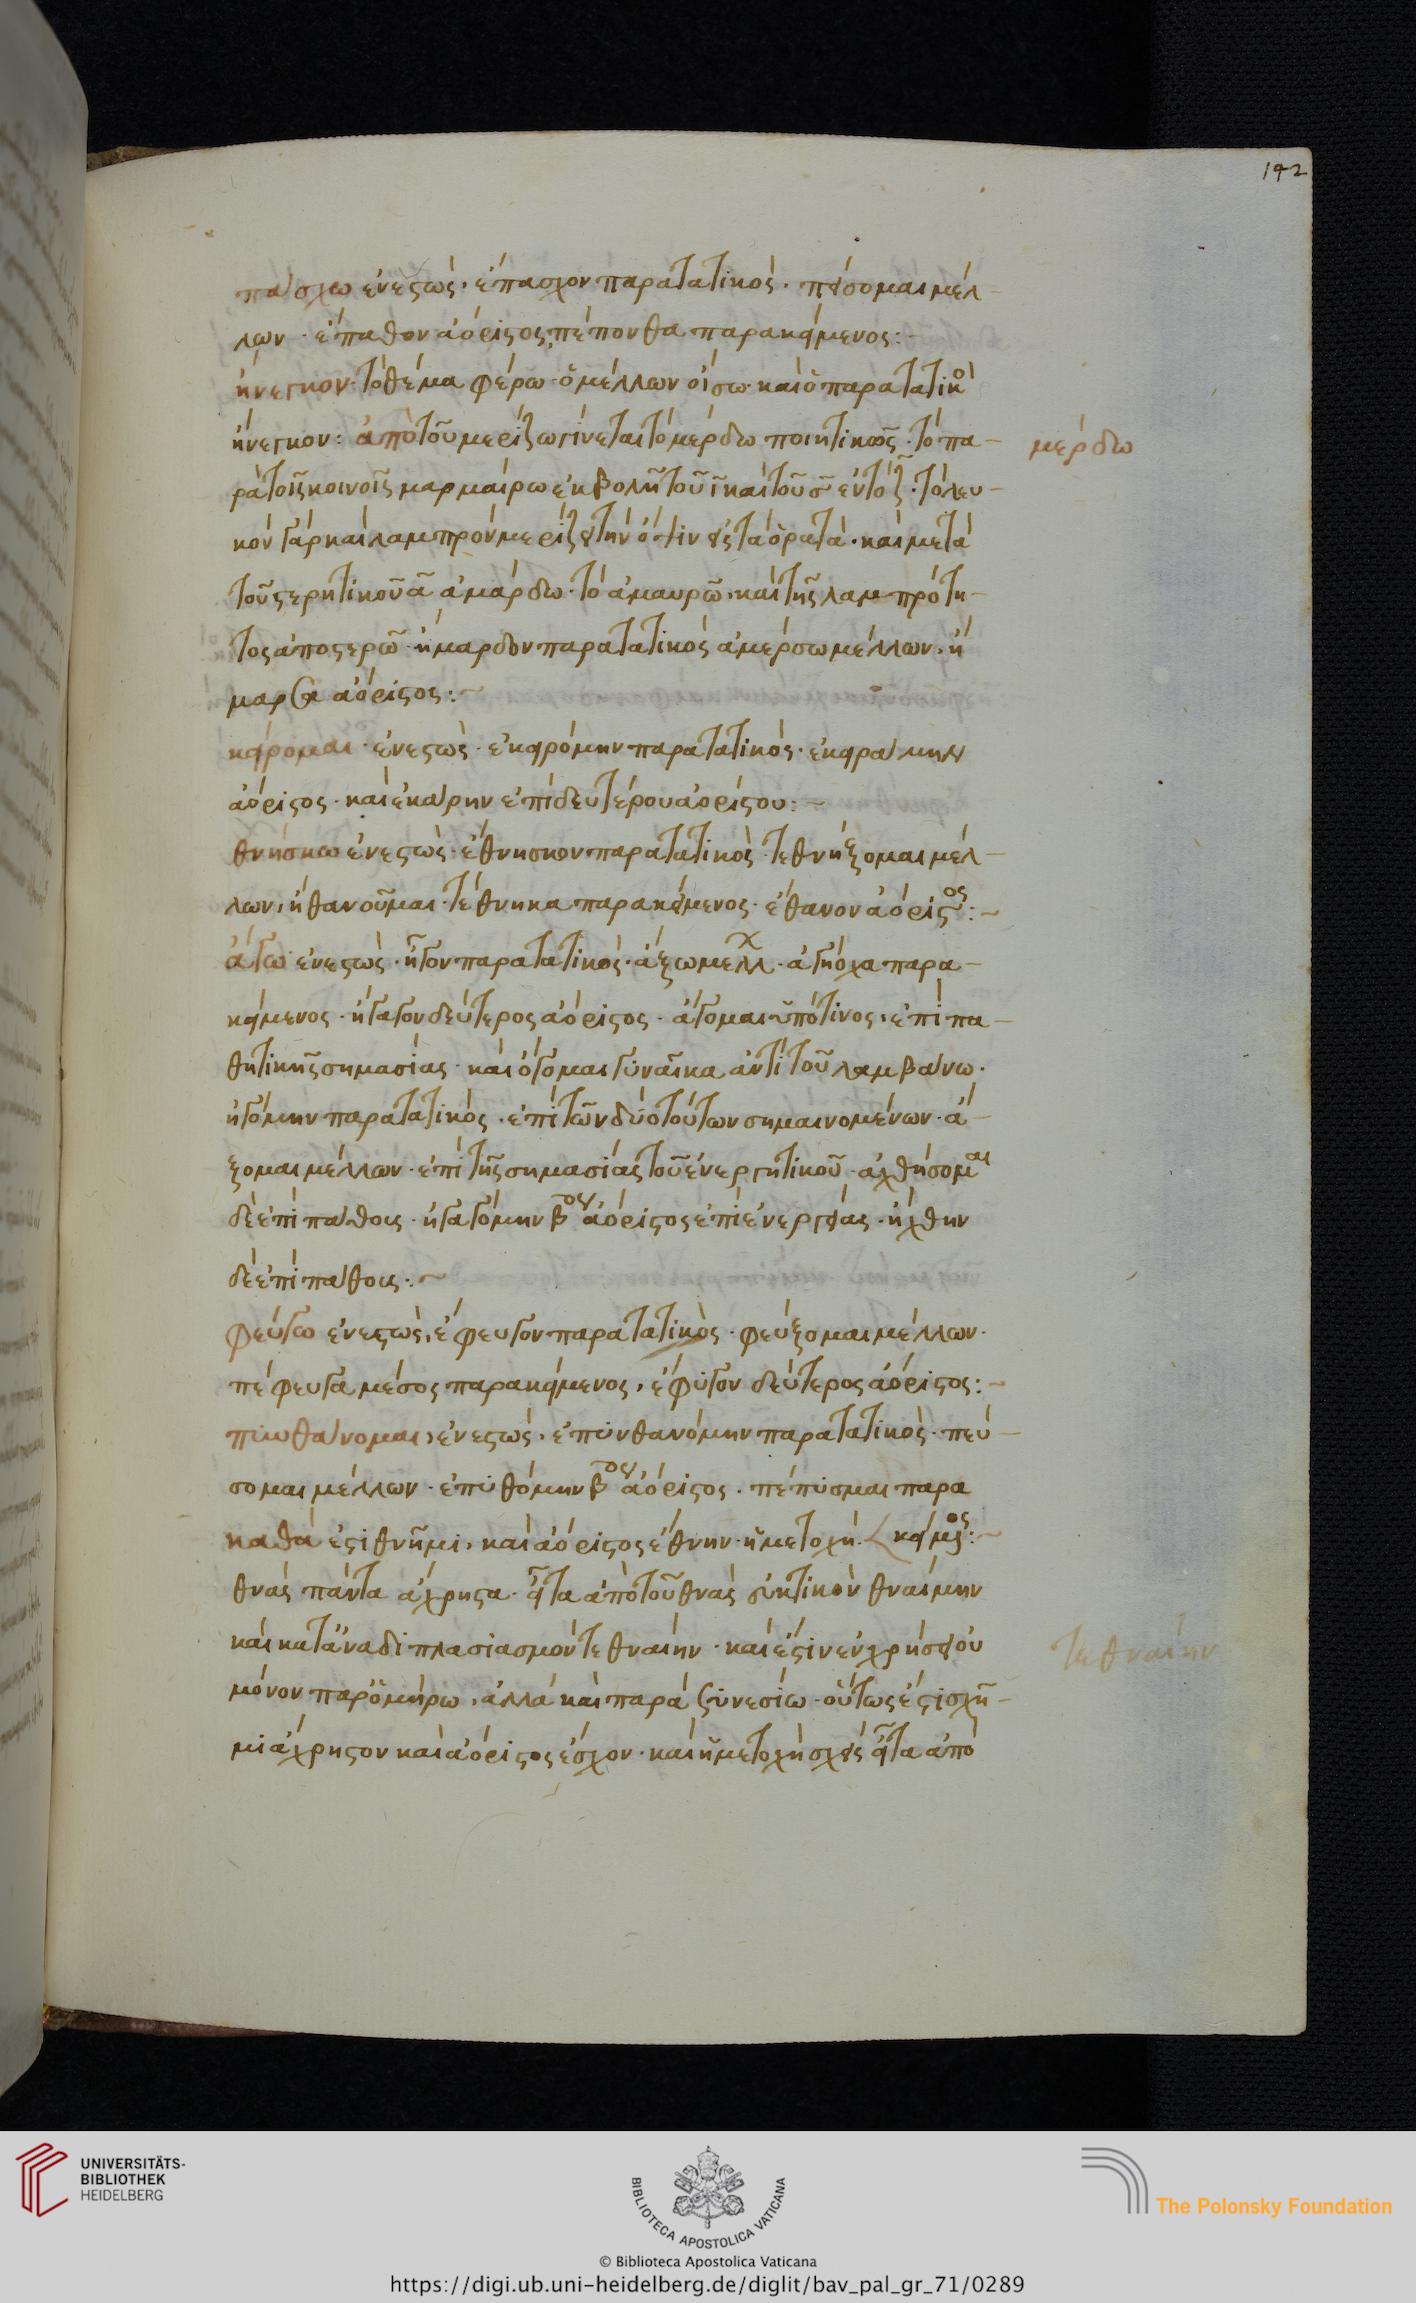 142
πάσχω ἐνεστώς· ἔπασχον παρατατικός· πείσομαι μέλ-
λων· ἔπαθον ἀόριστος, πέπονθα παρακείμενος:
ἤνεγκον· τὸ θέμα φέρω· ὁ μέλλων οἴσω· καὶ ὁ παρατατικὸ
ἤνεγκον: ἀπὸ τοῦ μερίζω γίνεται τὸ μέρδω ποιητικῶς· τὸ πα-
μέρδω
ρὰ τοῖς κοινοῖς μαρμαίρω ἐκβολῆ τοῦ ῑ καὶ τοῦ σ̄ ἐν τὸ ζ̄· τὸ λευ-
κὸν γὰρ καὶ λαμπρὸν μερίζει τὴν ὄψιν εἰς τὰ ὁρατά· καὶ μετὰ
τοῦ στερητικοῦ ᾱ ἀμάρδω· τὸ ἀμαυρῶ· καὶ τῆς λαμπρότη-
τος ἀποστερῶ· ἤμαρδον παρατατικός ἀμέρσω μέλλων· ἤ
μαρσα ἀόριστος:~
κείρομαι· ἐνεστώς· ἐκειρόμην παρατατικός· ἐκειράμην
ἀόριστος· καὶ ἐκάρην ἐπὶ δευτέρου ἀορίστου:~
θνήσκω ἐνεστώς· ἔθνησκον παρατατικός· τεθνήξομαι μέλ-
λων, ἢ θανοῦμαι· τέθνηκα παρακείμενος· ἔθανον ἀόριστος:~
ἄγω ἐνεστώς· ἦγον παρατατικός· ἄξω μελλ· ἀγήοχα παρα-
κείμενος· ἤγαγον δεύτερος ἀόριστος· ἄγομαι ὑπό τινος, ἐπὶ πα-
θητικῆς σημασίας· καὶ ἄγομαι γυναῖκα ἀντὶ τοῦ λαμβάνω·
ἠγόμην παρατατικός· ἐπὶ τῶν δύο τούτων σημαινομένων· ἄ-
ξομαι μέλλων· ἐπὶ τῆς σημασίας τοῦ ἐνεργητικοῦ· ἀχθήσομαι
δὲ ἐπὶ πάθους· ἠγαγόμην β̄ος ἀόριστος ἐπὶ ἐνεργείας· ἤχθην
δὲ ἐπὶ πάθους:~
φεύγω ἐνεστώς, ἔφευγον παρατατικός· φεύξομαι μέλλων·
πέφευγα μέσος παρακείμενος, ἔφυγον δεύτερος ἀόριστος:~
πυνθάνομαι, ἐνεστώς, ἐπυνθανόμην παρατατικός· πεύ-
σομαι μέλλων· ἐπυθόμην β̄ος ἀόριστος· πέπυσμαι παρα
καθά ἐστι θνῆμι, καὶ ἀόριστος ἔθνην· ἡ μετοχή· κείμενος:~
θνάς πάντα ἄχρηστα· εἶτα ἀπὸ τοῦ θνάς εὐκτικὸν θναίμην
καὶ κατ' ἀναδιπλασιασμὸν τεθναίην· καὶ ἔστιν ἐν χρήσει οὐ
τεθναίην
μόνον παρ' ὁμήρω, ἀλλὰ καὶ παρὰ συνεσίω· οὕτως ἐστι σχῆ-
μι ἄχρηστον καὶ ἀόριστος ἔσχον· καὶ ἡ μετοχὴ σχείς εἶτα ἀπὸ
UNIVERSITÄTS-
BIBLIOTHEK
HEIDELBERG
BIBLIOTECA APOSTOLICA VATICANA
© Biblioteca Apostolica Vaticana
The Polonsky Foundation
https://digi.ub.uni-heidelberg.de/diglit/bav_pal_gr_71/0289